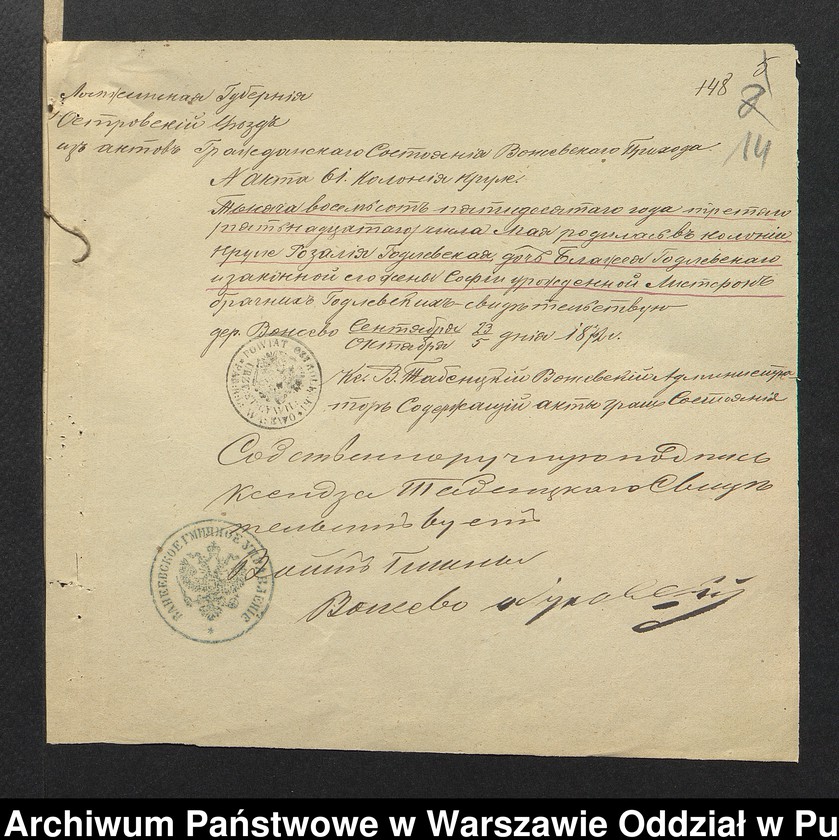 148 5
8
14
Ломжинская Губернія
Островскій Уѣздъ
изъ актовъ Гражданскаго Состоянія Вонсевскаго Прихода
N Акта 61. Колонія Крукъ.
Тысяча восемьсотъ пятидесятаго года третяго
пятьнадцатаго числа Мая родилась въ колоніи
Крукъ Розалія Годлевская, дочь Блажея Годлевскаго
и законной его жены Софіи урожденной
брачныхъ Годлевскихъ свидѣтельствую
дер. Вонсево Сентября 23 дня 187 г.
Октября 5
Кс. В. Табенцкій Вонсевскій Администра-
торъ Содержащій акты гражд Состоянія
Собственноручную подпись
ксендза Табенцкаго Свидѣ
тельствуетъ
Войтъ Гмины
Вонсево
POWIAT OSTROŁĘCKI
ГМИННОЕ УПРАВЛЕНІЕ
Archiwum Państwowe w Warszawie Oddział w Pu